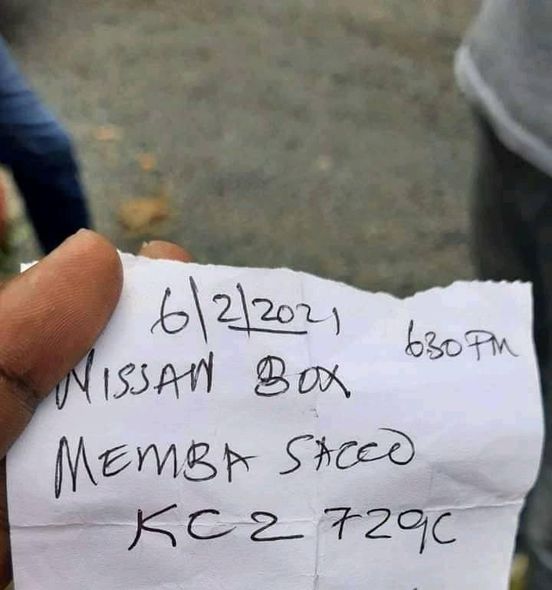 6/2/2021 630PM
NISSAN BOX
MEMBA SACCO
KC2 729C